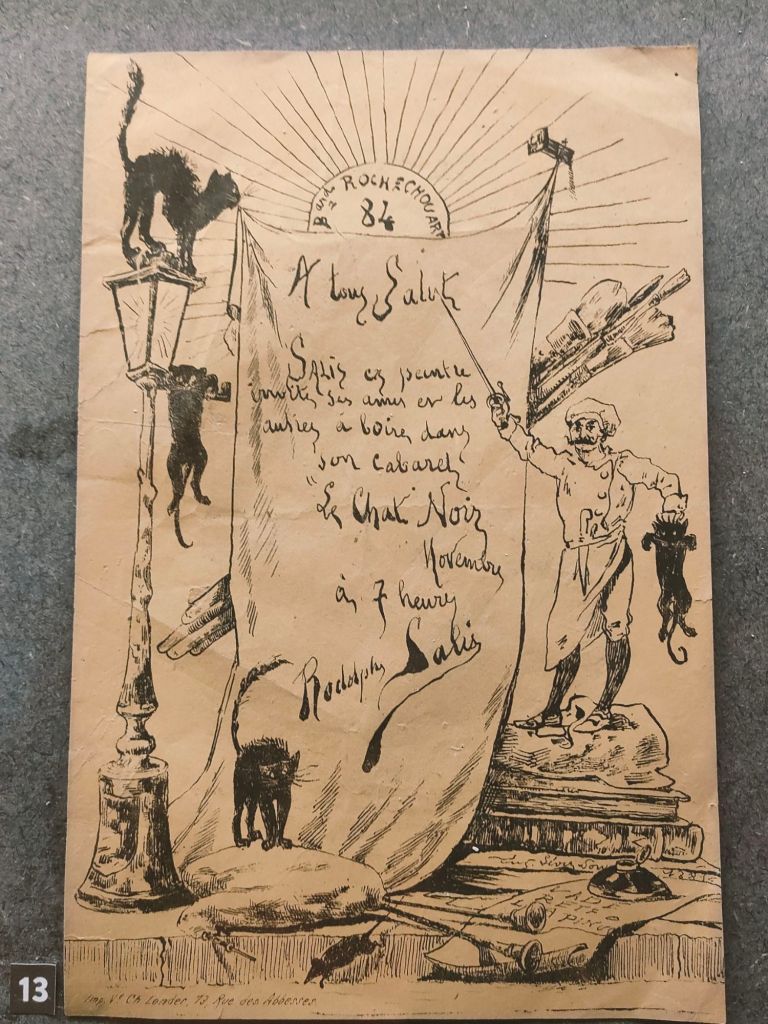 Band ROCHECHOUART
84
A tous Salut
SALIS es peintre
invite ses amis et les
autres à boire dans
son cabaret
"Le Chat Noir
Novembre
à 7 heures
Rodolphe Salis
Imp. Ve Ch. Lender, 13, Rue des Abbesses
13